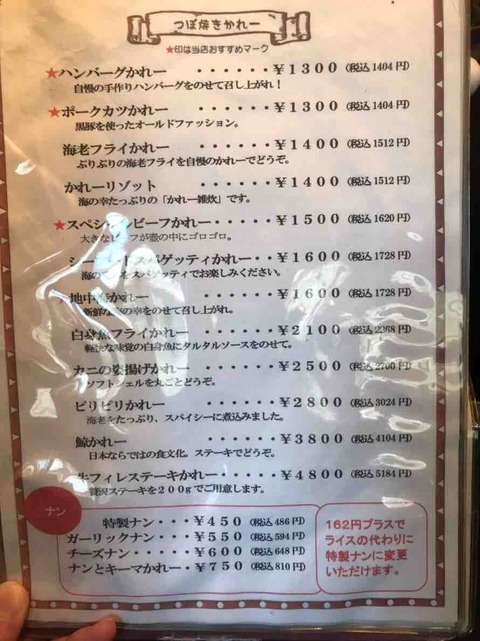 つぼ焼きかれー
★印は当店おすすめマーク
★ハンバーグかれー ・・・・・・￥1300（税込1404円）
自慢の手作りハンバーグをのせて召し上がれ！
★ポークカツかれー ・・・・・・￥1300（税込1404円）
黒豚を使ったオールドファッション。
海老フライかれー ・・・・・・￥1400（税込1512円）
ぷりぷりの海老フライを自慢のかれーでどうぞ。
かれーリゾット ・・・・・・￥1400（税込1512円）
海の幸たっぷりの「かれー雑炊」です。
★スペシャルビーフかれー・・・・・￥1500（税込1620円）
大きなビーフが壺の中にゴロゴロ。
シーフードスパゲッティかれー・・￥1600（税込1728円）
海の幸をスパゲッティでお楽しみください。
地中海かれー ・・・・・・￥1600（税込1728円）
新鮮な海の幸をのせて召し上がれ。
白身魚フライかれー ・・・・・￥2100（税込2268円）
軽快な味覚の白身魚にタルタルソースをのせて。
カニの姿揚げかれー ・・・・・￥2500（税込2700円）
ソフトシェルを丸ごとどうぞ。
ピリピリかれー ・・・・・・￥2800（税込3024円）
海老をたっぷり、スパイシーに煮込みました。
鯨かれー ・・・・・・￥3800（税込4104円）
日本ならではの食文化。ステーキでどうぞ。
牛フィレステーキかれー・・・・￥4800（税込5184円）
贅沢ステーキを200gでご用意します。
ナン
特製ナン・・・￥450（税込486円）
ガーリックナン・・・￥550（税込594円）
チーズナン・・・￥600（税込648円）
ナンとキーマかれー・・￥750（税込810円）
162円プラスで
ライスの代わりに
特製ナンに変更
いただけます。